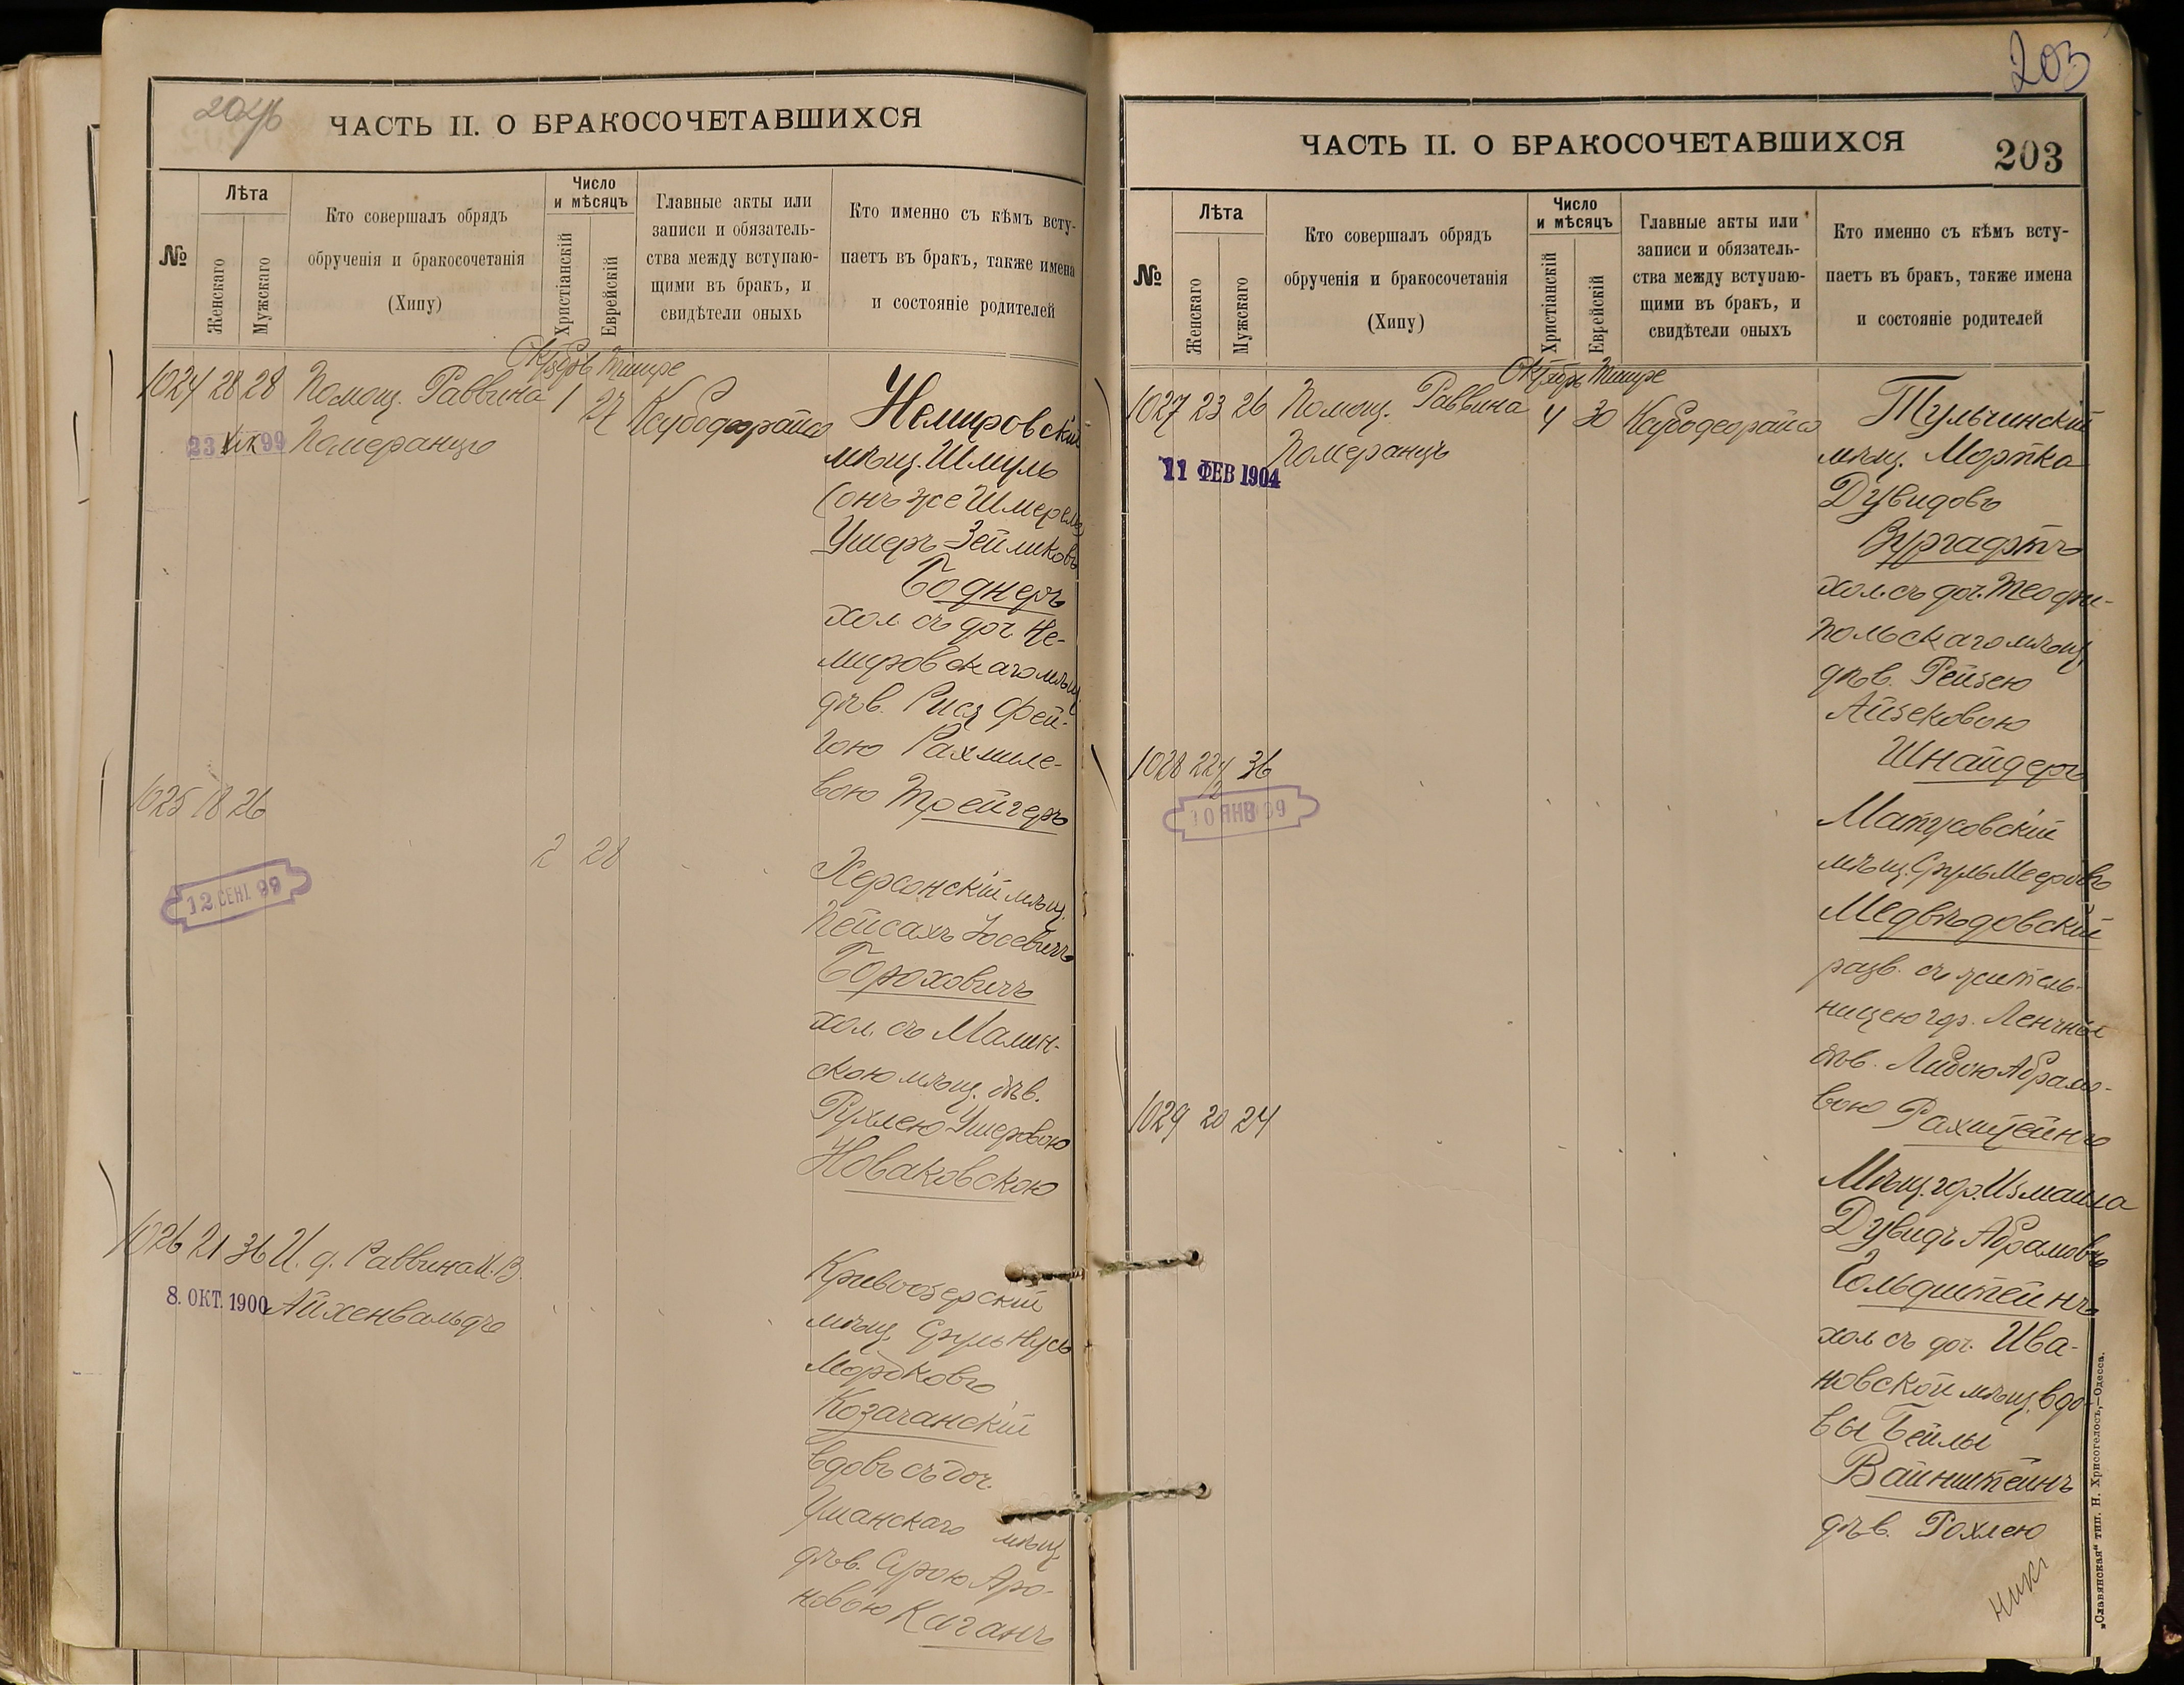 202об
ЧАСТЬ II. О БРАКОСОЧЕТАВШИХСЯ
№
Лѣта
Женскаго
Мужскаго
Кто совершалъ обрядъ
обрученія и бракосочетанія
(Хипу)
Число
и мѣсяцъ
Христіанскій
Еврейскій
Главные акты или
записи и обязатель-
ства между вступаю-
щими въ бракъ, и
свидѣтели оныхъ
Кто именно съ кѣмъ всту-
паетъ въ бракъ, также имена
и состояніе родителей
Октябрь Тишре
1024 28 28 Помощ. Раввина 1 27
99 Померанцъ
Немировскій
мѣщ. Шмуль
(онъ же Шмерель)
Ушеръ Зейликовъ
Боднеръ
хол. съ доч. Не-
мировскаго мѣщ.
дѣв. Рися Фей-
гою Рахмиле-
вою Трейгеръ
1025 18 26
2 28
12 СЕНТ 99
Херсонскій мѣщ.
Пейсахъ Іосевичъ
Бороховичъ
хол. съ Малин-
скою мѣщ. дѣв.
Рухлею Ушеровою
Новаковскою
1026 21 36 И. д. Раввина И. В.
8. ОКТ. 1900 Айхенвальдъ
Кривоозерскій
мѣщ. Сруль Нусь
Мордковъ
Козачанскій
вдовъ съ доч.
Уманскаго мѣщ.
дѣв. Сурою Аро-
новою Каганъ
203
ЧАСТЬ II. О БРАКОСОЧЕТАВШИХСЯ
203
№
Лѣта
Женскаго
Мужскаго
Кто совершалъ обрядъ
обрученія и бракосочетанія
(Хипу)
Число
и мѣсяцъ
Христіанскій
Еврейскій
Главные акты или
записи и обязатель-
ства между вступаю-
щими въ бракъ, и
свидѣтели оныхъ
Кто именно съ кѣмъ всту-
паетъ въ бракъ, также имена
и состояніе родителей
Октябрь Тишре
1027 23 26 Помощ. Раввина 4 30
Померанцъ
11 ФЕВ 1904
Тульчинскій
мѣщ. Мортка
Дувидовъ
Вургафтъ
хол. съ доч. Теофи-
польскаго мѣщ.
дѣв. Рейзею
Айзековою
Шнайдеръ
1028 22 1/2 36
10 ЯНВ 99
Матусовскій
мѣщ. Сруль Мееровъ
Медвѣдовскій
разв. съ житель-
ницею гор. Ленчны
дѣв. Либою Абрамо-
вою Рахштейнъ
1029 20 24
Мѣщ. гор. Измаила
Дувидъ Абрамовъ
Гольдштейнъ
хол. съ доч. Ива-
новской мѣщ. вдо-
вы Бейлы
Вайнштейнъ
дѣв. Рохлею
„Славянская“ тип. Н. Хрисогелосъ,—Одесса.